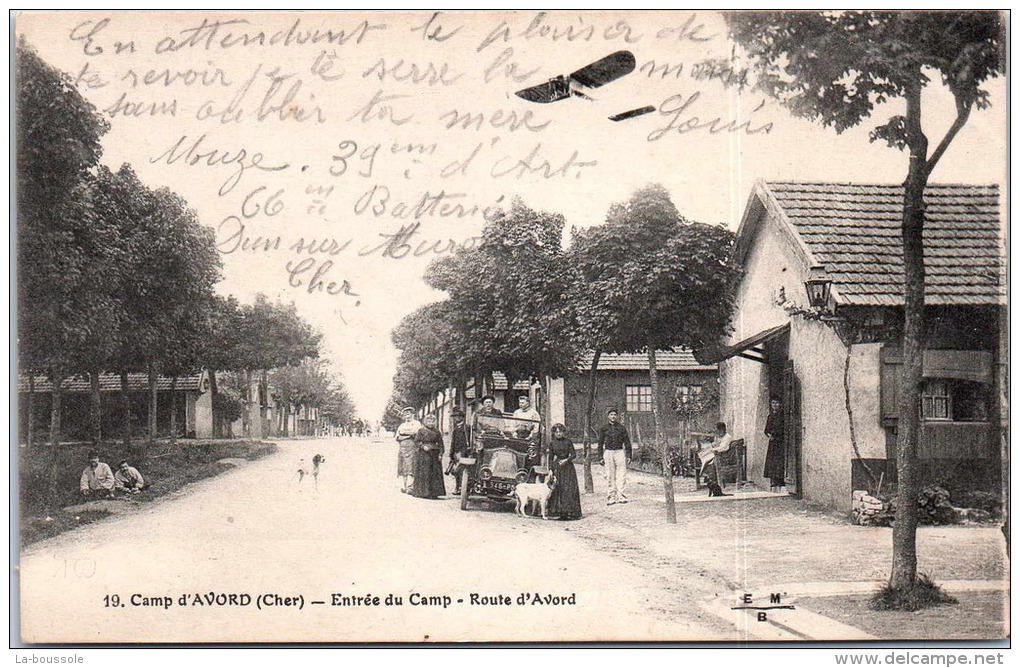 En attendant le plaisir de
te revoir je te serre la main
sans oublier ta mere Louis
Mouze. 39em d'Art.
66 em Batterie
Dun sur Auron
Cher.
19. Camp d'AVORD (Cher) — Entrée du Camp - Route d'Avord
E M
B
La-boussole
www.delcampe.net